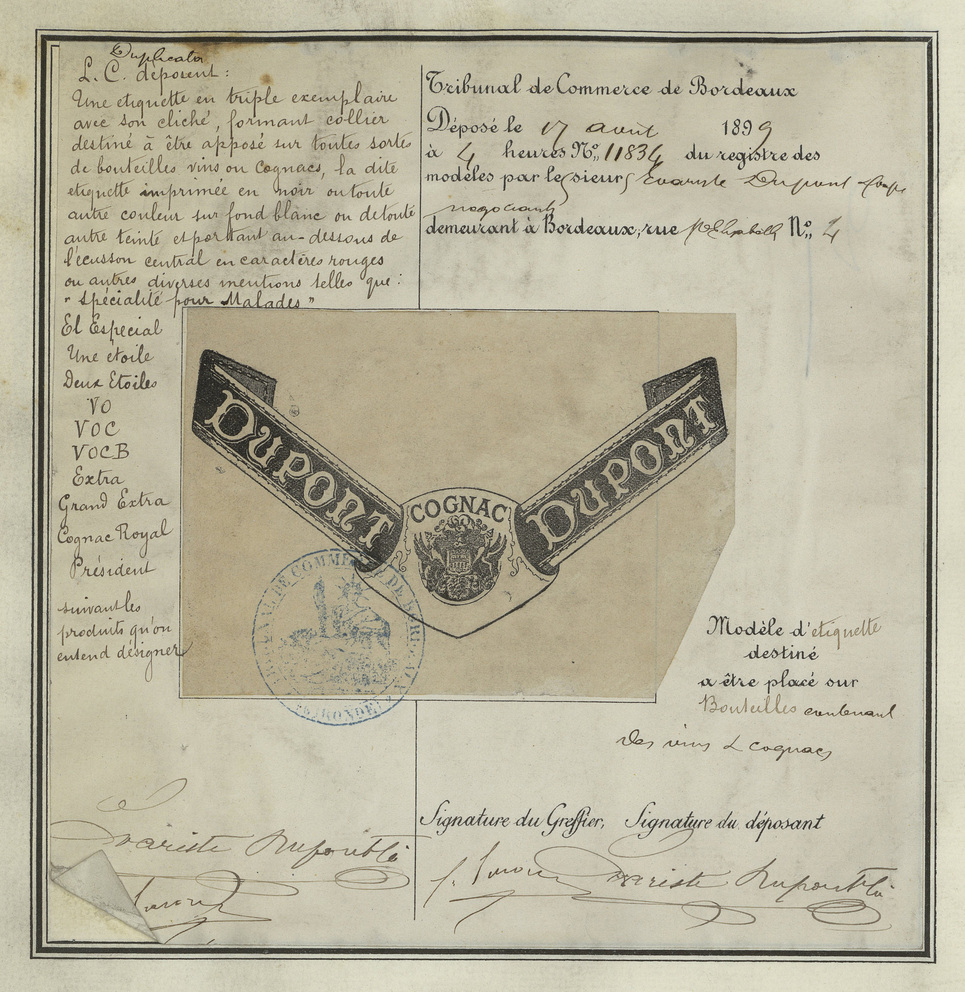 Duplicata
L. C. déposent :
Une etiquette en triple exemplaire
avec son cliché, formant collier
destiné à être apposé sur toutes sortes
de bouteilles vins ou Cognacs, la dite
etiquette imprimée en noir ou toute
autre couleur sur fond blanc ou de toute
autre teinte et portant au-dessous de
l'écusson central en caractères rouges
ou autres diverses mentions telles que :
" Spécialité pour Malades "
El Especial
Une étoile
Deux Etoiles
VO
VOC
VOCB
Extra
Grand Extra
Cognac Royal
Président
suivant les
produits qu'on
entend désigner
Evariste Dupont & Cie
Tribunal de Commerce de Bordeaux
Déposé le 17 août 1899
à 4 heures No, 11834 du registre des
modèles par le sieur Evariste Dupont
negociants
demeurant à Bordeaux, rue No, 4
DUPONT
COGNAC
DUPONT
TRIBUNAL DE COMMERCE DE BORDEAUX
GIRONDE
Modèle d'etiquette
destiné
a être placé sur
Bouteilles contenant
des vins & cognacs
Signature du Greffier, Signature du déposant
Evariste Dupont & Cie